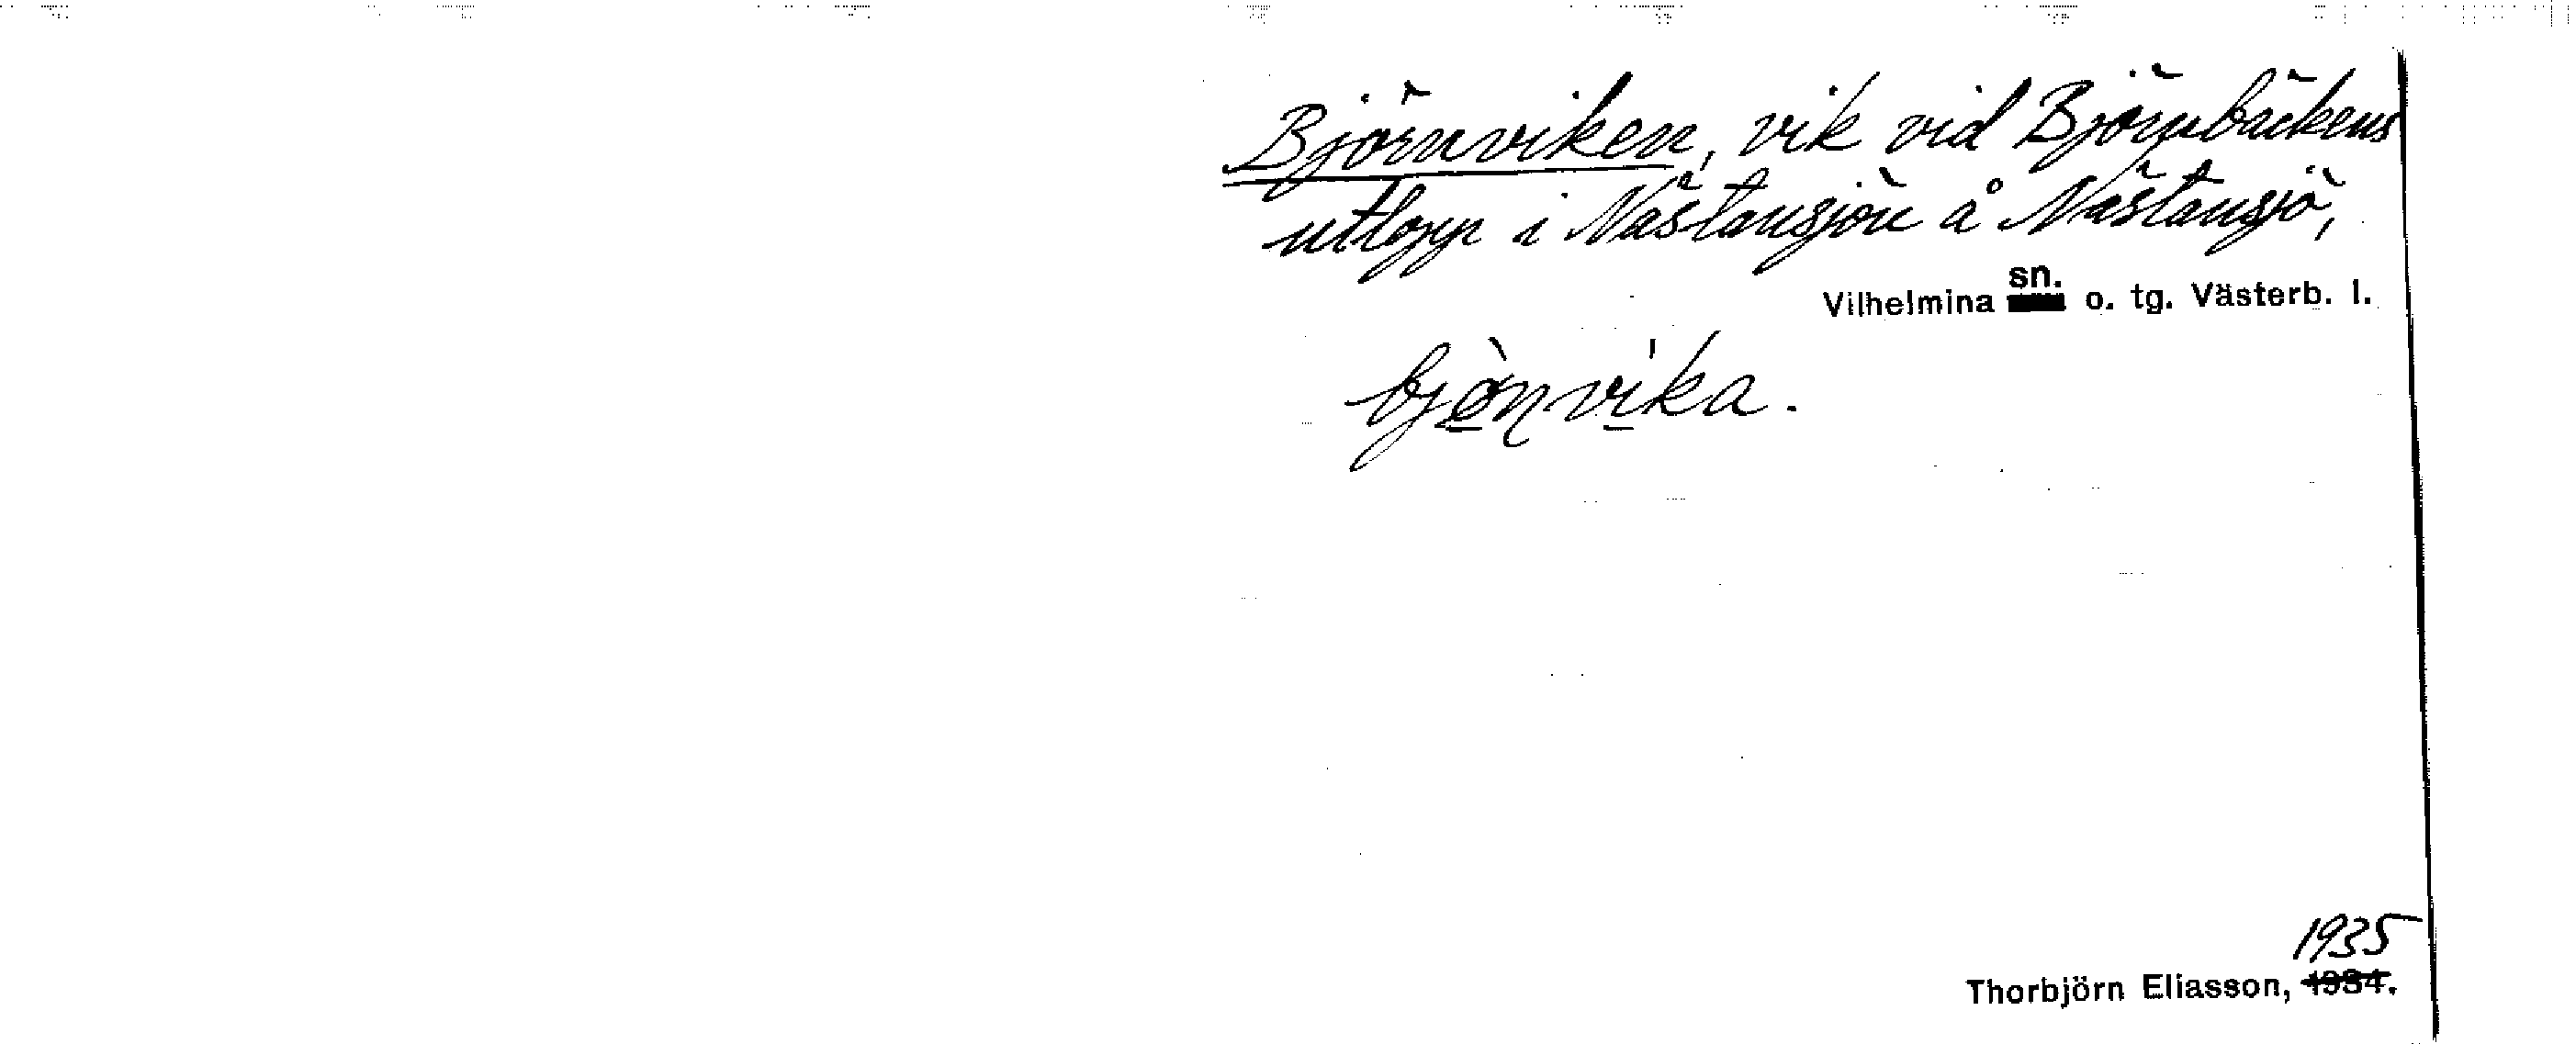 Björnviken, vik vid Björnbäckens
utlopp i Nästansjön å Nästansjö,
Vilhelmina sn. o. tg. Västerb. l.
bjò̠ŋvi̠ka.
1935
Thorbjörn Eliasson, 1934.